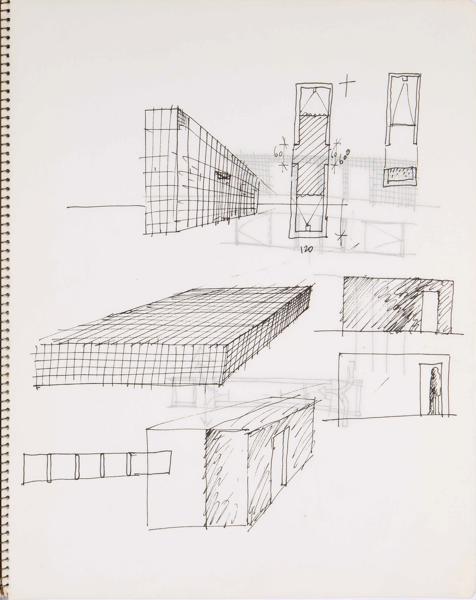 60
60
120